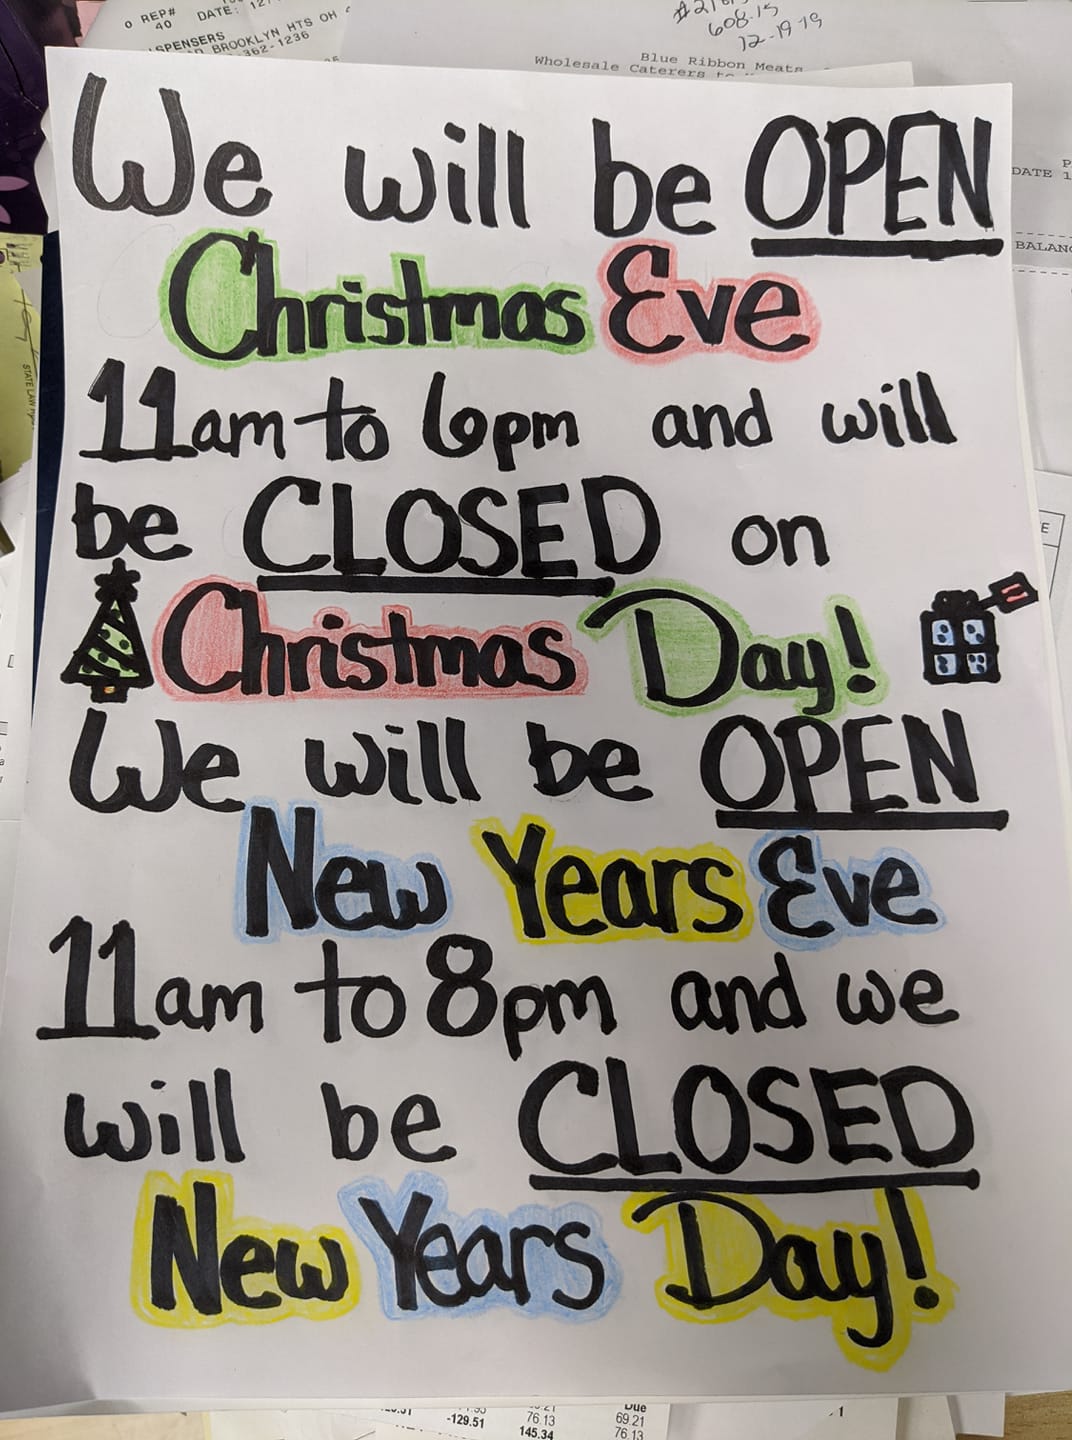 0 REP# DATE:
40
SPENSERS
BROOKLYN HTS OH
362-1236
608.15
12-19-19
Blue Ribbon Meats
Wholesale Caterers
DATE
BALANC
STATE LAW
We will be OPEN
Christmas Eve
11am to 6pm and will
be CLOSED on
Christmas Day!
We will be OPEN
New Years Eve
11am to 8pm and we
will be CLOSED
New Years Day!
Due
-129.51 76.13 69.21
145.34 76.13